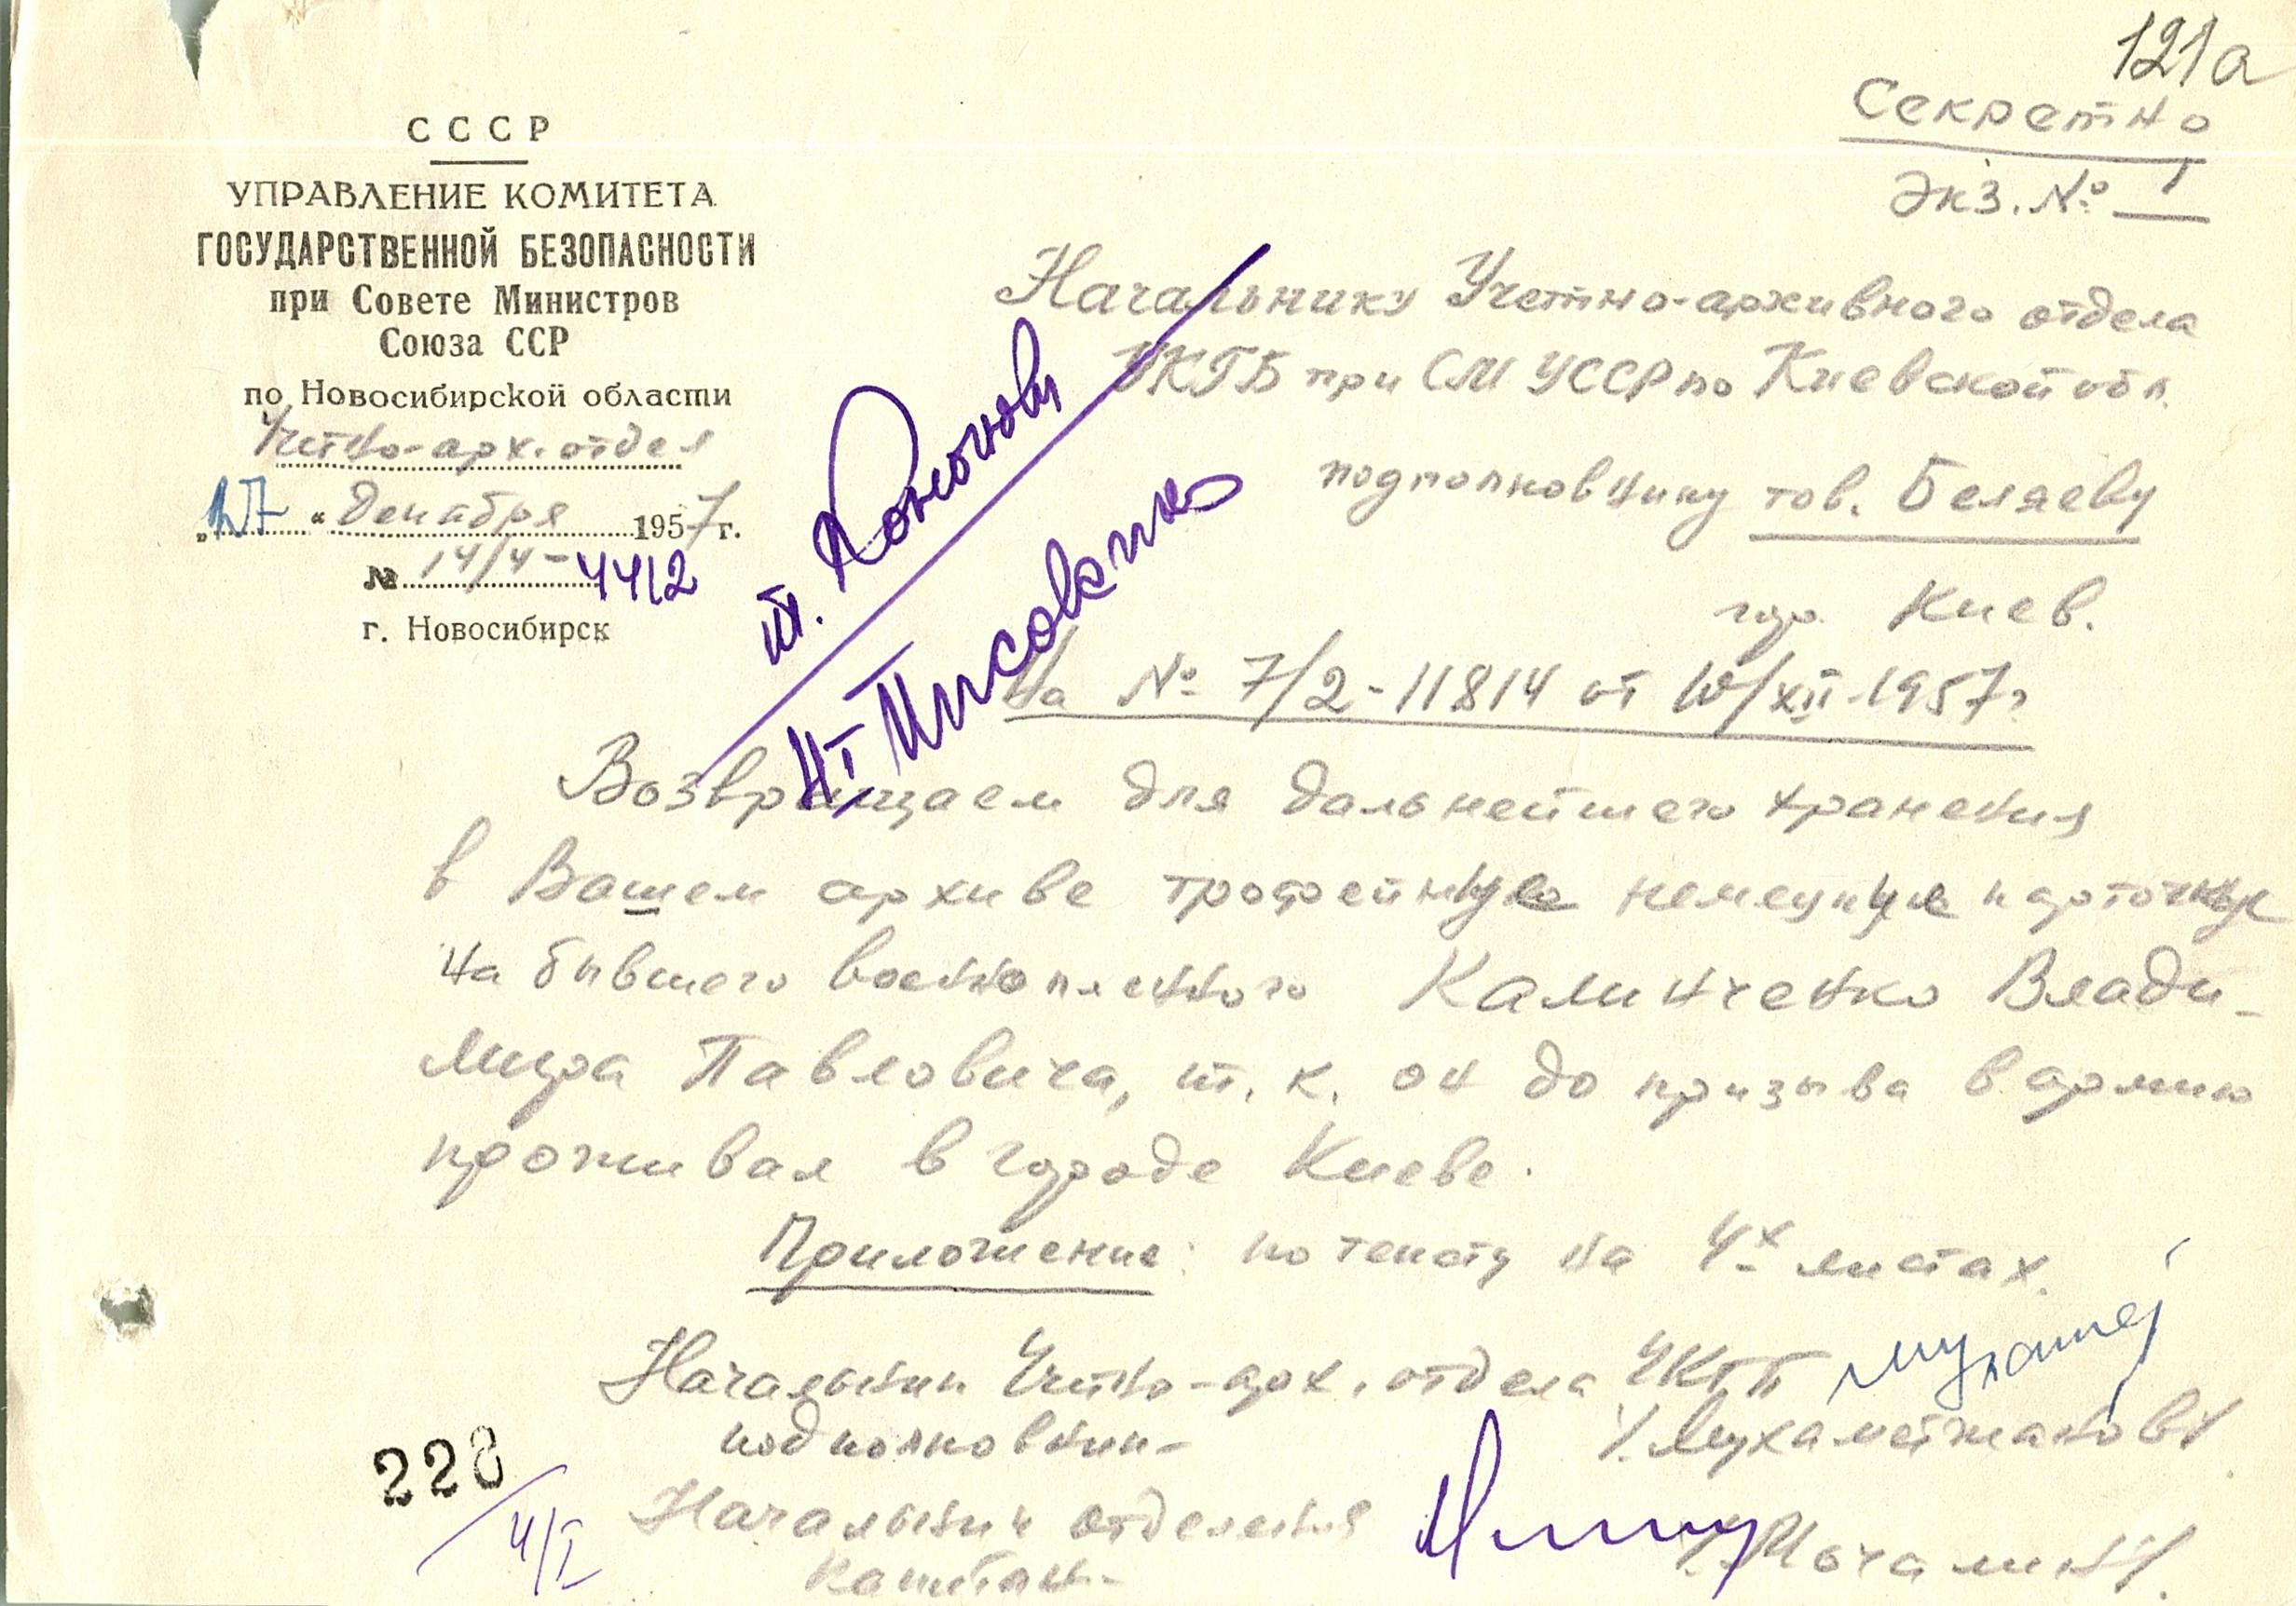 121а
Секретно
Экз. № 1
СССР
УПРАВЛЕНИЕ КОМИТЕТА
ГОСУДАРСТВЕННОЙ БЕЗОПАСНОСТИ
при Совете Министров
Союза ССР
по Новосибирской области
Учетно-арх. отдел
"27" декабря 1957 г.
№ 14/4-4412
г. Новосибирск
Начальнику Учетно-архивного отдела
УКГБ при СМ УССР по Киевской обл.
подполковнику тов. Беляеву
гор. Киев.
На № 7/2-11814 от 10/XII-1957г.
т. Кононову
Возвращаем для дальнейшего хранения
в Вашем архиве трофейную немецкую карточку
на бывшего военнопленного Калинченко Влади-
мира Павловича, т. к. он до призыва в армию
проживал в городе Киеве.
Приложение: по тексту на 4х листах.
Начальник Учетно-арх. отдела УКГБ
подполковник- /Мухаметжанов/
Начальник отделения
капитан-
228
4/I